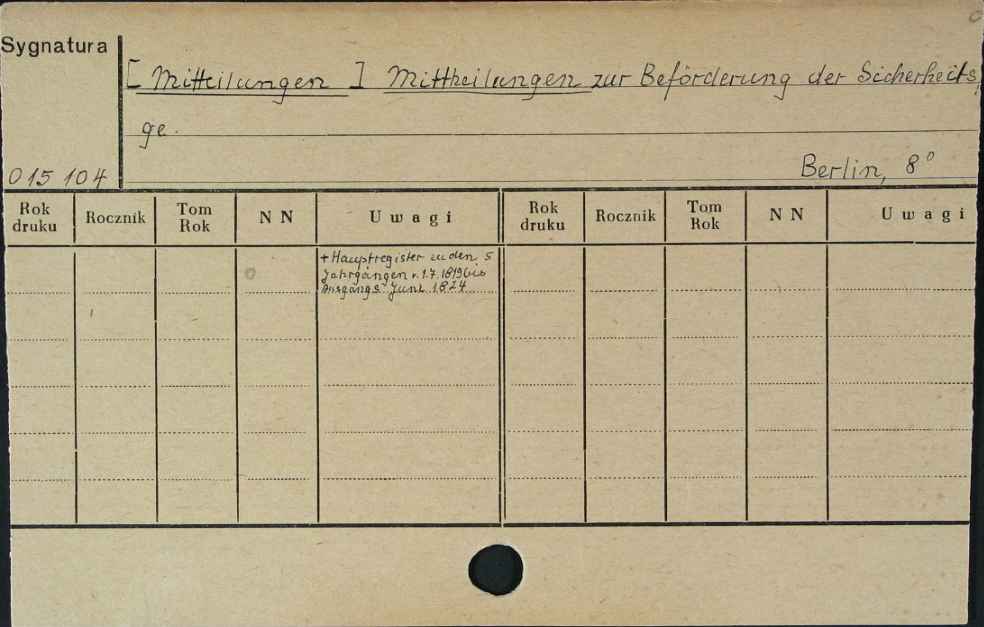 Sygnatura
[ Mitteilungen ] Mittheilungen zur Beförderung der Sicherheits
ge.
015 104
Berlin, 8°
Rok druku Rocznik Tom Rok NN Uwagi Rok druku Rocznik Tom Rok NN Uwagi
+ Hauptregister zu den 5
Jahrgängen v. 1.7. 1819 bis
Ausgangs Juni 1824